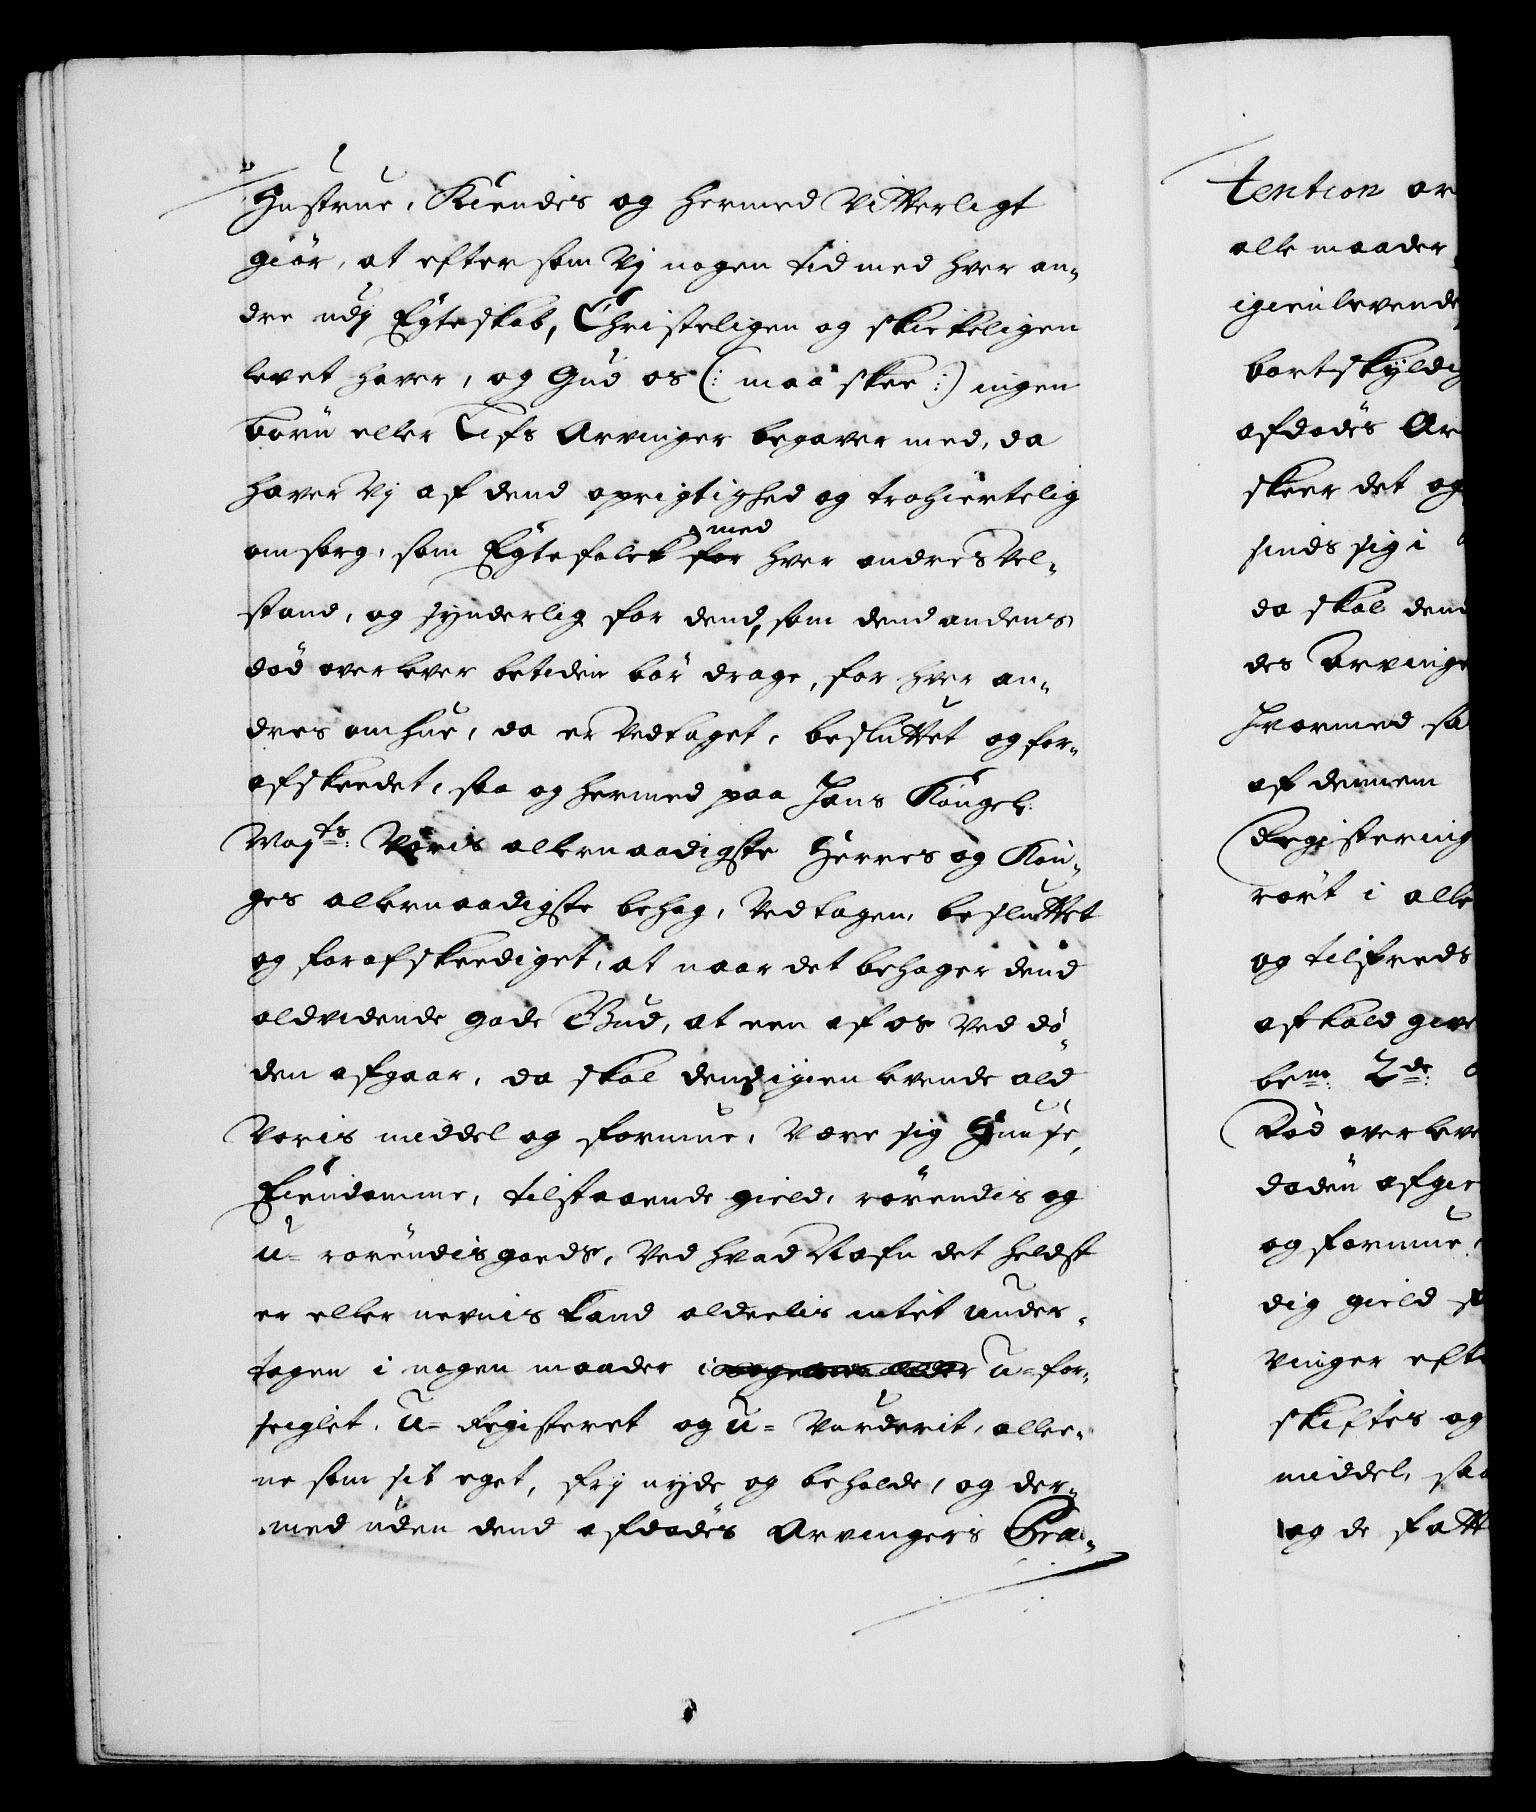 Hustrue, Kiendis og hermed Vitterligt
giör, at eftersom Vj nogen tid med hver an-
dre udj Egteskab, Christeligen og skickeligen
levet haver, og Gud os (: maa skee :) ingen
börn eller Lifs Arvinger begaver med, da
haver Vj af dend oprigtighed og trohiertelig
omsorg, som Egtefolck for med hver andres Vel-
stand, og synderlig for dend, som dend andens
död overlever betiden bör drage, for hver an-
dres omhue, da er Vedtaget, besluttet og for-
afskeedet, saa og hermed paa Hans Kongel:
Mayts: Voris allernaadigste Herres og Kon-
ges allernaadigste behag, Vedtagen, besluttet
og forafskeediget, at naar det behager dend
aldvidende gode Gud, at een af os Ved dö-
den afgaar, da skal dend igienlevende ald
Voris middel og formue, Være sig Huuse,
Eiendomme, tilstaaende gield, rörendis og
u-rörendis goeds, Ved hvad Nafn det heldst
er eller nevnis kand aldeelis intet under-
tagen i nogen maader u-for-
seiglet, U-Registeret og U-Vurderit, allee-
ne som sit eget, frj nyde og beholde, og der-
med uden dend afdödes Arvingers Præ-
tention
alle maader
igienlevende
bortskyldig
afdödes Ar
skeer det og
sinds sig i
da skal dend
des Arvinge
Hvormed sa
af dennem
Registering
rört i alle
og tilfreds
afkald give
bem: 2de:
Död overleve
döden afgie
og formue,
dig gield
Vinger efte
skiftes og
middel, saa
og de fatt